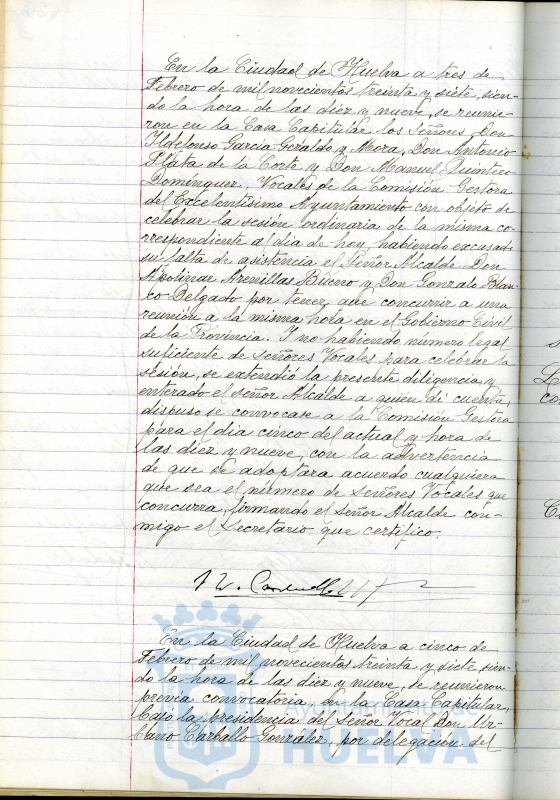 En la Ciudad de Huelva a tres de
Febrero de mil novecientos treinta y siete, sien-
do la hora de las diez y nueve, se reunie-
ron en la Casa Capitular los Señores Don
Ildefonso Garcia Geraldo y Mora, Don Antonio
Plata de la Corte y Don Manuel Quintero
Dominguez, Vocales de la Comisión Gestora
del Excelentisimo Ayuntamiento con objeto de
celebrar la sesión ordinaria de la misma co-
rrespondiente al dia de hoy, habiendo excusado
su falta de asistencia el Señor Alcalde Don
Apolinar Arenillas Bueno y Don Gonzalo Blan-
co Delgado por tener que concurrir a una
reunión a la misma hora en el Gobierno Civil
de la Provincia. Y no habiendo numero legal
suficiente de Señores Vocales para celebrar la
sesión, se extendió la presente diligencia, y
enterado el señor Alcalde a quien di cuenta,
dispuso se convocase a la Comisión Gestora
para el dia cinco del actual y hora de
las diez y nueve, con la advertencia
de que se adoptara acuerdo cualquiera
que sea el numero de Señores Vocales que
concurra, firmando el Señor Alcalde con-
migo el Secretario que certifico.
En la Ciudad de Huelva a cinco de
Febrero de mil novecientos treinta y siete, sien-
do la hora de las diez y nueve, se reunieron
previa convocatoria, en la Casa Capitular,
bajo la presidencia del Señor Vocal Don Ur-
bano Carballo González, por delegación del
Ayuntamiento de
HUELVA